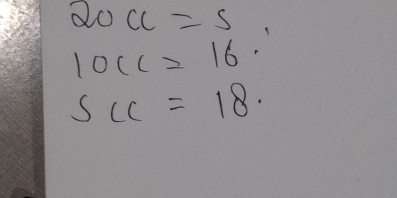 20 cc = 5
10 cc = 16.
5 cc = 18.